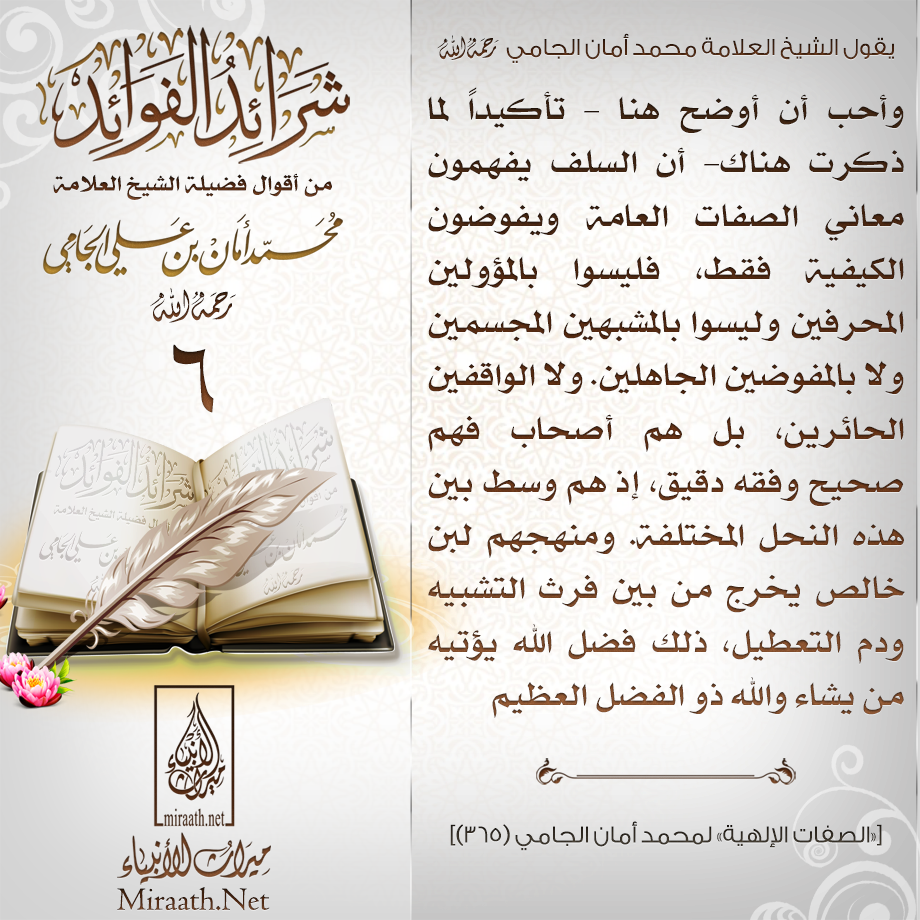 شَرَائِدُ الفَوَائِد
من أقوال فضيلة الشيخ العلامة
محُمَّد أَمَان بن عَلي الجَامِي
رَحِمَهُ اللهُ
٦
يقول الشيخ العلامة محمد أمان الجامي رَحِمَهُ اللهُ
وأحب أن أوضح هنا – تأكيداً لما
ذكرت هناك– أن السلف يفهمون
معاني الصفات العامة ويفوضون
الكيفية فقط، فليسوا بالمؤولين
المحرفين وليسوا بالمشبهين المجسمين
ولا بالمفوضين الجاهلين. ولا الواقفين
الحائرين، بل هم أصحاب فهم
صحيح وفقه دقيق، إذ هم وسط بين
هذه النحل المختلفة. ومنهجهم لبن
خالص يخرج من بين فرث التشبيه
ودم التعطيل، ذلك فضل الله يؤتيه
من يشاء والله ذو الفضل العظيم
[«الصفات الإلهية» لمحمد أمان الجامي (٣٦٥)]
شَرَائِدُ الفَوَائِد
ميراث الأنبياء
miraath.net
ميراث الأنبياء
Miraath.Net